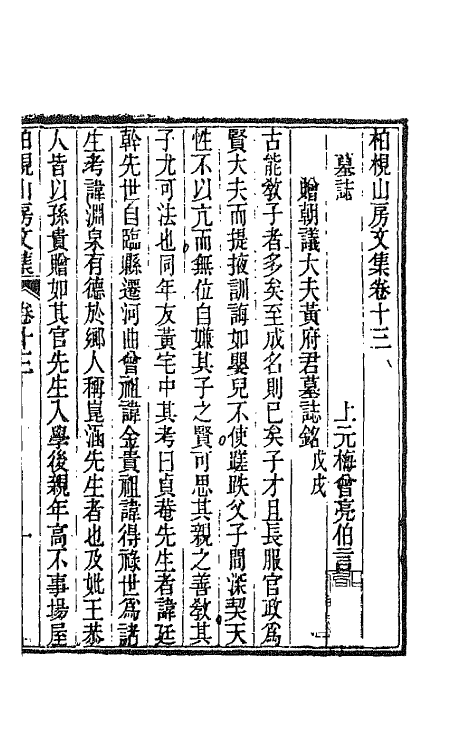 柏梘山房文集卷十三
上元梅曾亮伯言
墓誌
贈朝議大夫黃府君墓誌銘戊戌
古能敎子者多矣至成名則已矣子才且長服官政爲
賢大夫而提掖訓誨如嬰兒不使蹉跌父子間深契天
性不以亢而無位自嫌其子之賢可思其親之善敎其
子尤可法也同年友黃宅中其考曰貞菴先生者諱廷
幹先世自臨縣遷河曲曾祖諱金貴祖諱得祿世爲諸
生考諱淵泉有德於鄉人稱崑涵先生者也及妣王恭
人皆以孫貴贈如其官先生入學後親年高不事場屋
柏梘山房文集 卷十三 一